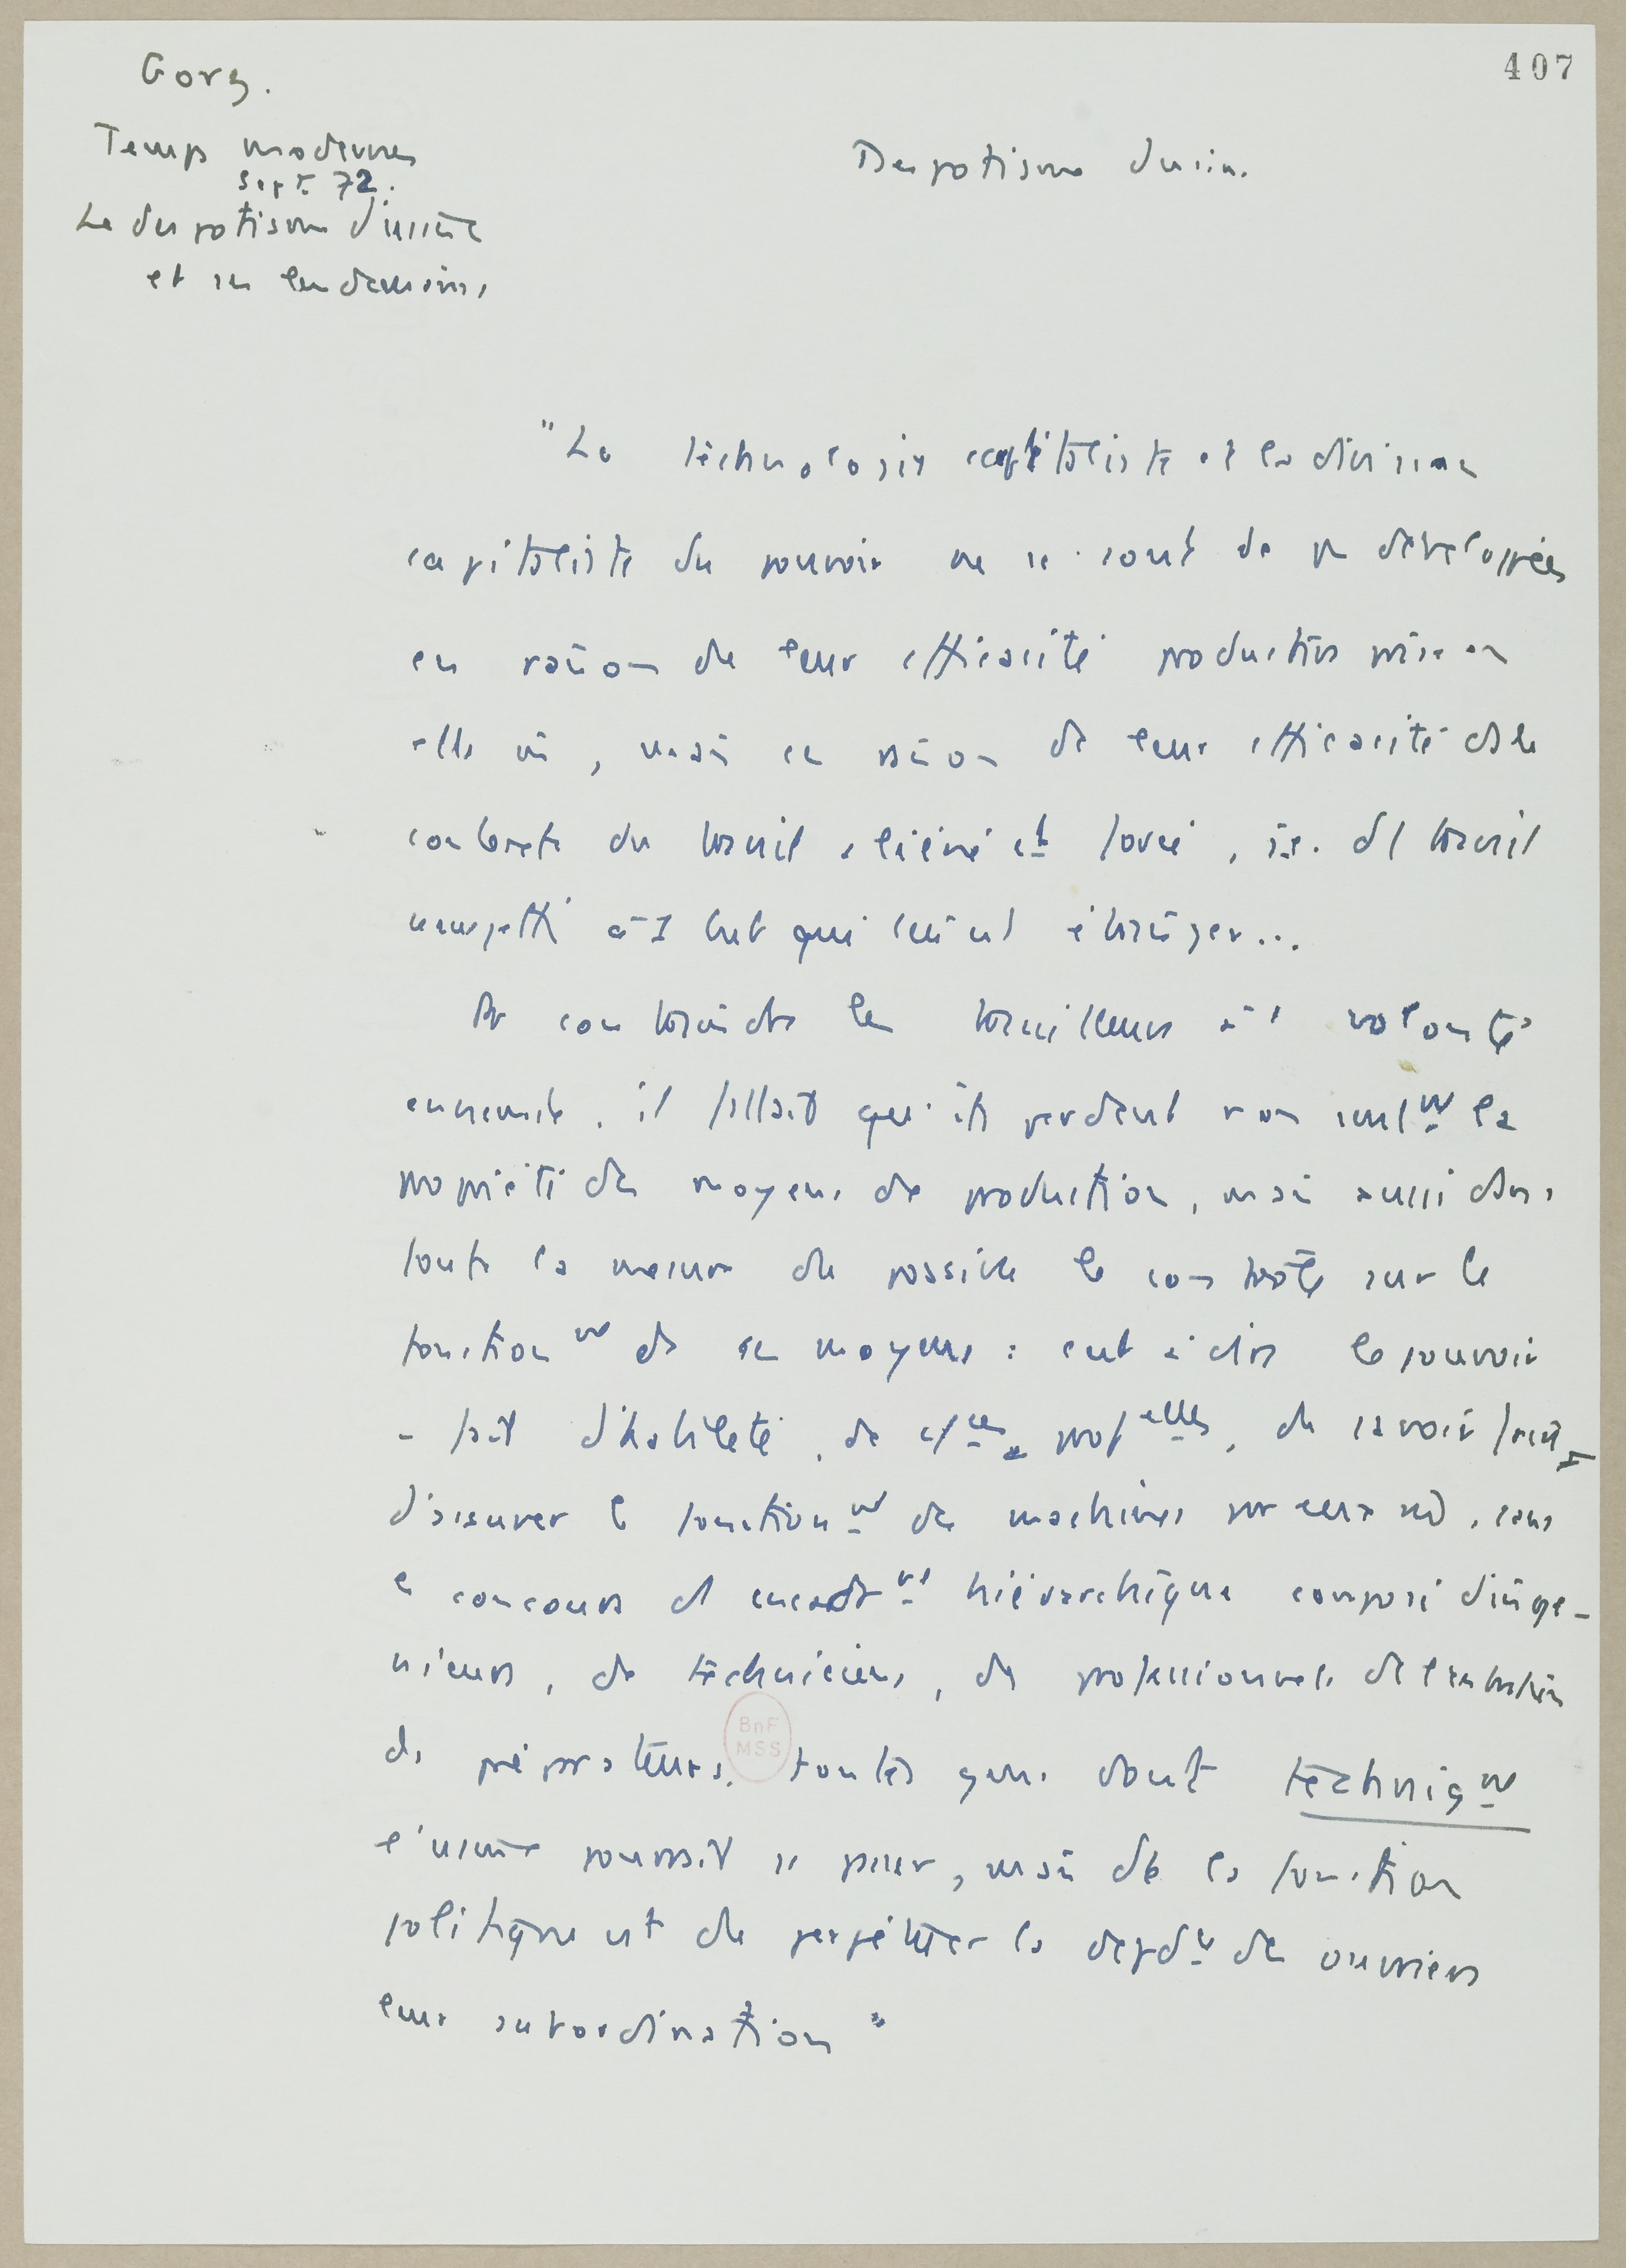 407
Gorz.
Temps modernes
sept. 72.
Le despotisme d'usine
et ses lendemains
Despotisme d'usine.
"La technologie capitaliste et la division
capitaliste du pouvoir ne se sont dc pas développées
en raison de leur efficacité productive prise en
elle mê, mais en raison de leur efficacité ds le
contexte du travail aliéné et forcé, i.e. du travail
assujetti à 1 but qui lui est étranger...
Pr contraindre les travailleurs à 1 volonté
ennemie, il fallait qu'ils perdent non seulnt la
propriété des moyens de production, mais aussi dans
toute la mesure du possible le contrôle sur le
fonctionnt de ces moyens : c'est à dire le pouvoir
- fait d'habileté, de cfces profelles, de savoir faire -
d'assurer le fonctionnt des machines par eux mê, sans
le concours d'1 encadrnt hiérarchique composé d'ingé-
nieurs, de techniciens, de professionnels de l'entretien
de préparateurs, toutes gens dont techniqnt
l'usine pourrait se passer, mais dt la fonction
politique est de perpétuer la dépdce des ouvriers
leur subordination"
BnF
MSS